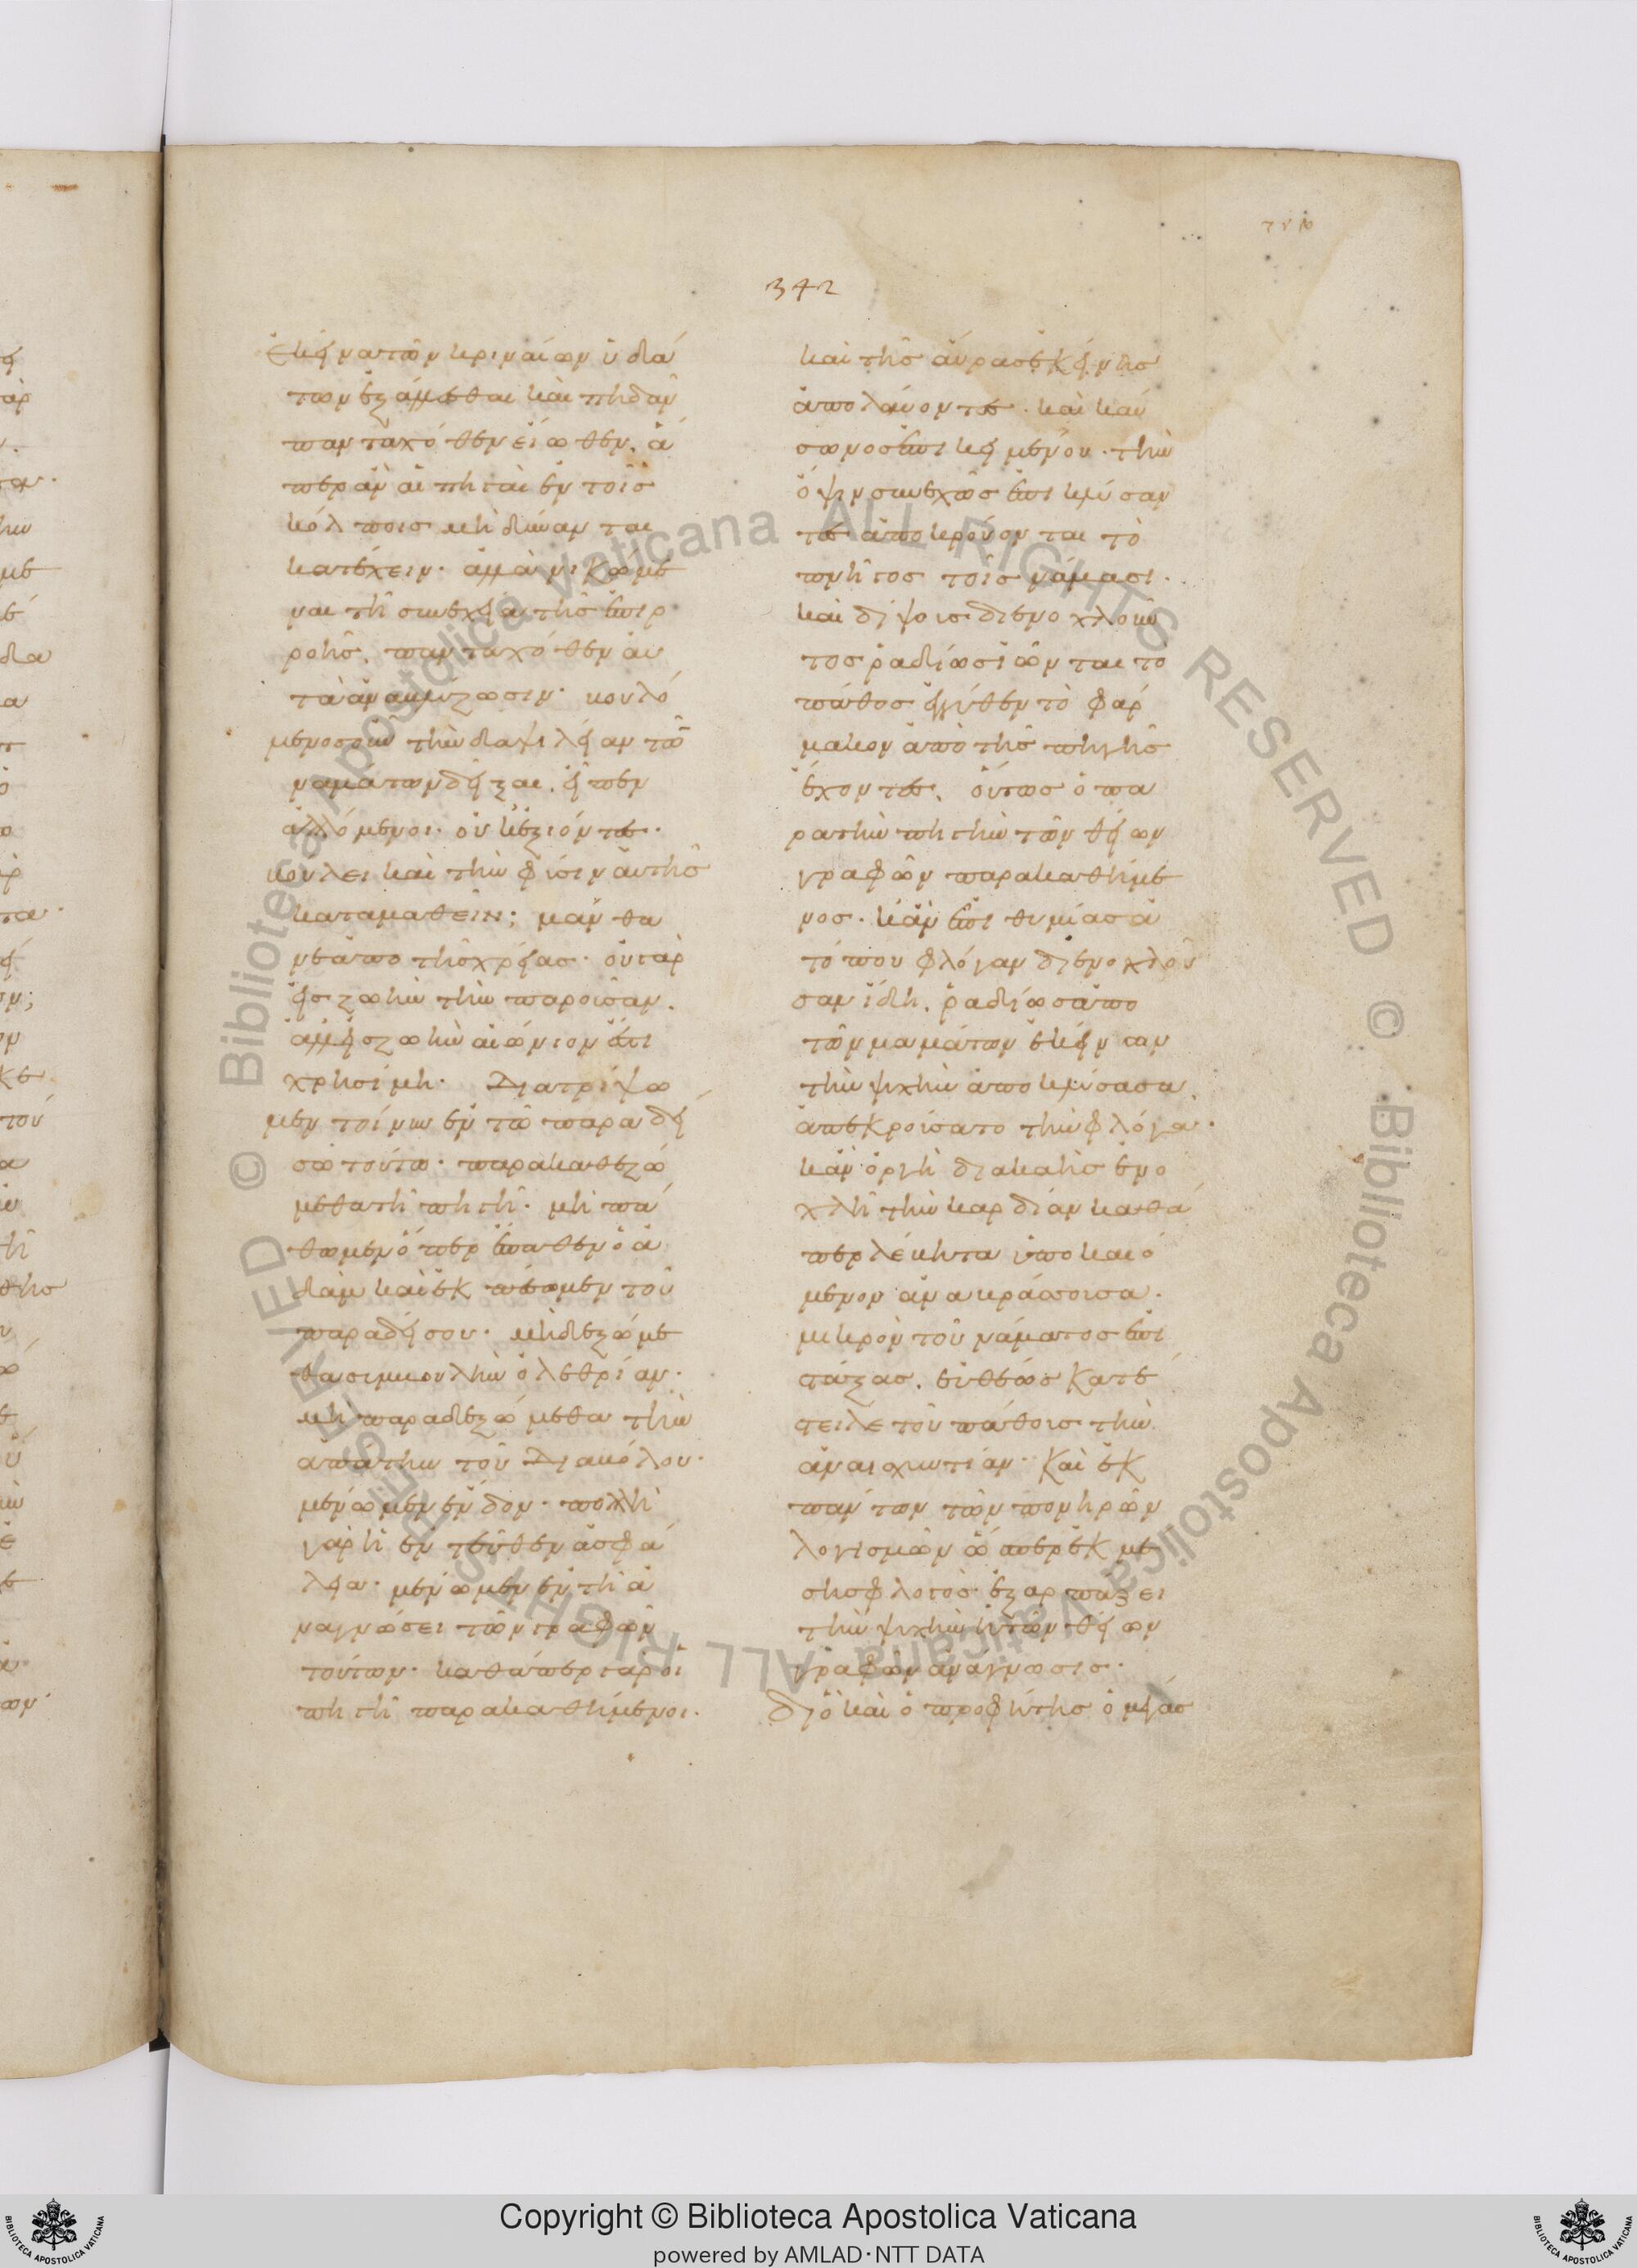 τνθ
342
ἐκείνα τῶν κρηναίων ὑδά
των ἐξάλλεσθαι καὶ πηδᾶν
πανταχόθεν εἴωθεν. ἅ
περ ἂν αἱ πηγαὶ ἐν τοῖς
κόλποις μὴ δύνανται
κατέχειν· ἀλλὰ νικώμε
ναι τῇ συνεχείᾳ τῆς ἐπιρ
ροῆς, πανταχόθεν αὐ
τὰ ἀναβλύζωσιν· βουλό
μενος οὖν τὴν δαψίλειαν τῶν
ναμάτων δεῖξαι, εἶπεν
ἁλλόμενοι· οὐκ ἐξιόντες·
βούλει καὶ τὴν φύσιν αὐτῆς
καταμαθεῖν; μάνθα
νε ἀπὸ τῆς χρείας· οὐ γὰρ
εἰς ζωὴν τὴν παροῦσαν,
ἀλλ' εἰς ζωὴν αἰώνιον ἐστὶ
χρησίμη· Διατρίψω
μεν τοίνυν ἐν τῷ παραδεί
σῳ τούτῳ· παρακαθεζώ
μεθα τῇ πηγῇ· μὴ πά
θωμεν ὅπερ ἔπαθεν ὁ ἀ
δὰμ καὶ ἐκπέσωμεν τοῦ
παραδείσου· μὴ δεξώμε
θα συμβουλὴν ὀλεθρίαν·
μὴ παραδεξώμεθα τὴν
ἀπάτην τοῦ Διαβόλου·
μένωμεν ἔνδον· πολλὴ
γὰρ ἡ ἐντεῦθεν ἀσφά
λεια· μένωμεν ἐν τῇ ἀ
ναγνώσει τῶν γραφῶν
τούτων· καθάπερ γὰρ οἱ
πηγῇ παρακαθήμενοι·
καὶ τῆς αὔρας ἐκείνης
ἀπολαύοντες· καὶ καύ
σωνος ἐπικειμένου· τὴν
ὄψιν συνεχῶς ἐπικλύσαν
τες ἀποκρούονται τὸ
πνῖγος τοῖς νάμασι·
καὶ δίψους διενοχλοῦν
τος ῥαδίως ἰῶνται τὸ
πάθος ἐγγύθεν τὸ φάρ
μακον ἀπὸ τῆς πηγῆς
ἔχοντες. οὕτως ὁ πα
ρὰ τὴν πηγὴν τῶν θείων
γραφῶν παρακαθήμε
νος· κἂν ἐπιθυμίας ἀ
τόπου φλόγα διενοχλοῦ
σαν ἴδῃ, ῥαδίως ἀπὸ
τῶν ναμάτων ἐκείνων
τὴν ψυχὴν ἀποκλύσασα,
ἀπεκρούσατο τὴν φλόγα·
κἂν ὀργὴ διακαὴς ἐνο
χλῇ τὴν καρδίαν καθά
περ λέβητα ὑποκαιό
μενον ἀναβράσσουσα·
μικρὸν τοῦ νάματος ἐπι
στάξας, εὐθέως κατέ
στειλε τοῦ πάθους τὴν
ἀναισχυντίαν· Καὶ ἐκ
πάντων τῶν πονηρῶν
λογισμῶν ὥσπερ ἐκ μέ
σης φλογὸς ἐξαρπάζει
τὴν ψυχὴν ἡ τῶν θείων
γραφῶν ἀνάγνωσις·
διὸ καὶ ὁ προφήτης ὁ μέγας
© Biblioteca Apostolica Vaticana ALL RIGHTS RESERVED © Biblioteca Apostolica Vaticana ALL RIGHTS RESERVED
Copyright © Biblioteca Apostolica Vaticana
powered by AMLAD·NTT DATA
BIBLIOTECA APOSTOLICA VATICANA
BIBLIOTECA APOSTOLICA VATICANA